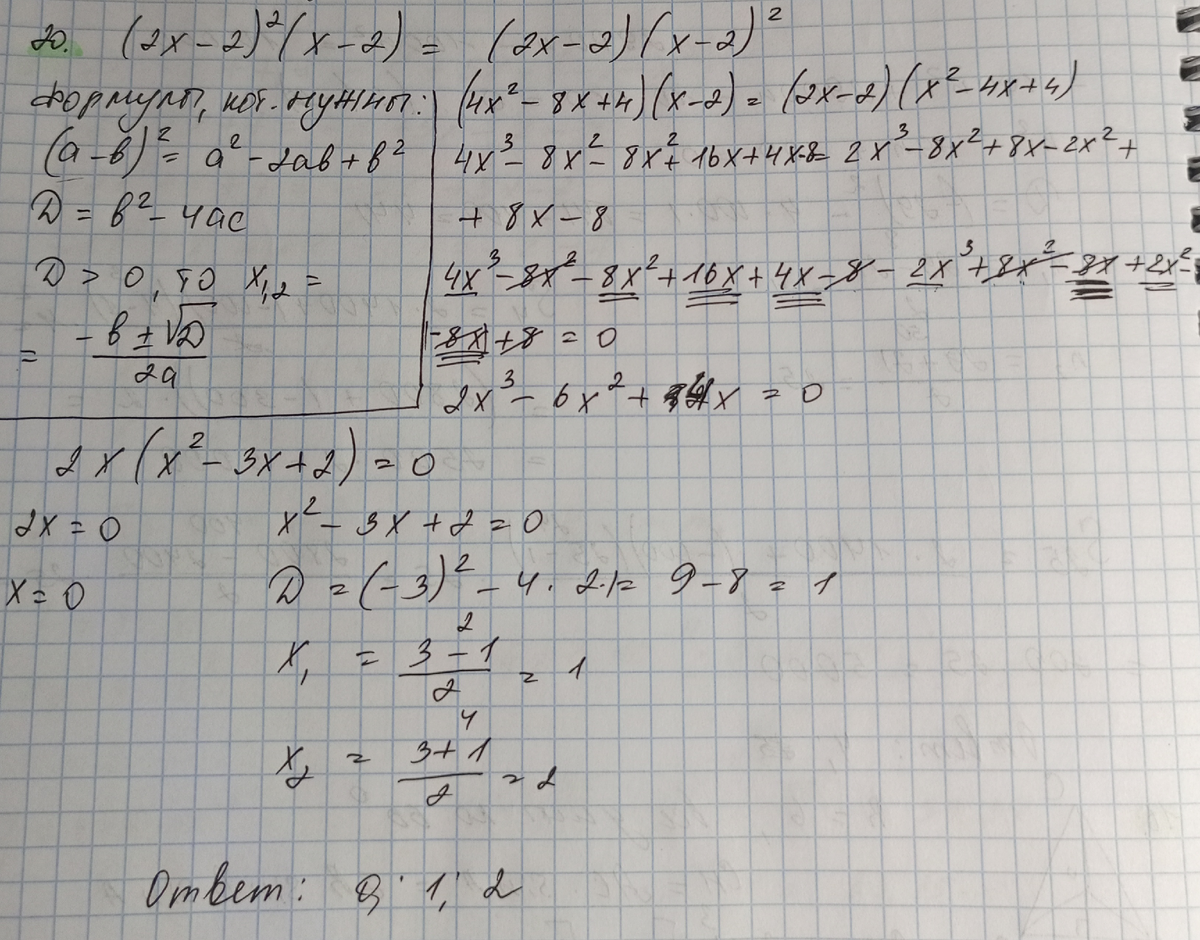 20. (2x-2)²(x-2) = (2x-2)(x-2)²
Формулы, кот. нужны:
(a-b)² = a²-2ab+b²
D = b²-4ac
D > 0, то x₁,₂ =
= -b ± √D / 2a
(4x²-8x+4)(x-2) = (2x-2)(x²-4x+4)
4x³-8x²-8x²+16x+4x-8 = 2x³-8x²+8x-2x²+
+8x-8
4x³-8x²-8x²+16x+4x-8-2x³+8x²-8x+2x²-
-8x+8 = 0
2x³-6x²+4x = 0
2x(x²-3x+2) = 0
2x = 0 x²-3x+2 = 0
x = 0 D = (-3)²-4·2·1 = 9-8 = 1
x₁ = 3-1 / 2 = 1
2
x₂ = 3+1 / 2 = 2
4
Ответ: 0; 1; 2